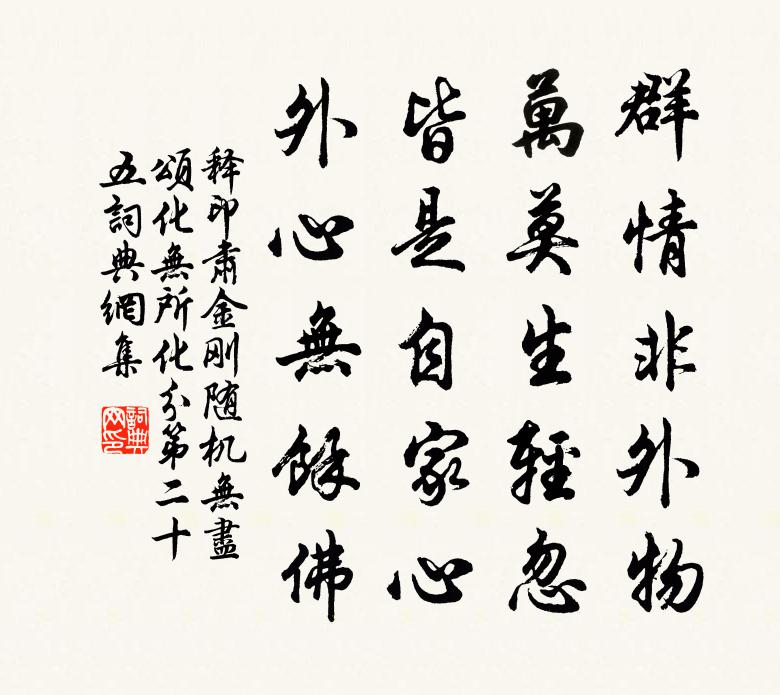 群情非外物
萬莫生輕忽
皆是自家心
外心無餘佛
释印肃金刚随机無盡
頌化無所化分第二十
五詞典網集
詞典
网印